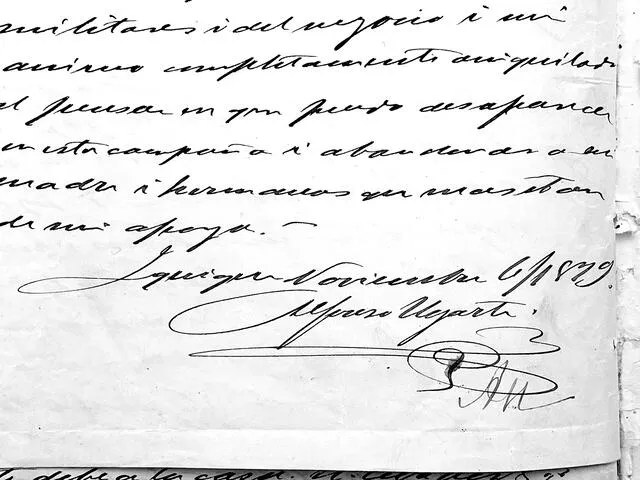 militares i del negocio i mi
animo completamente aniquilado
al pensar en que puedo desaparecer
en esta campaña i abandonar a mi
madre i hermanas que necesitan
de mi apoyo. —
Iquique Noviembre 6/1879.
Alfonso Ugarte.
AU
debe a la casa